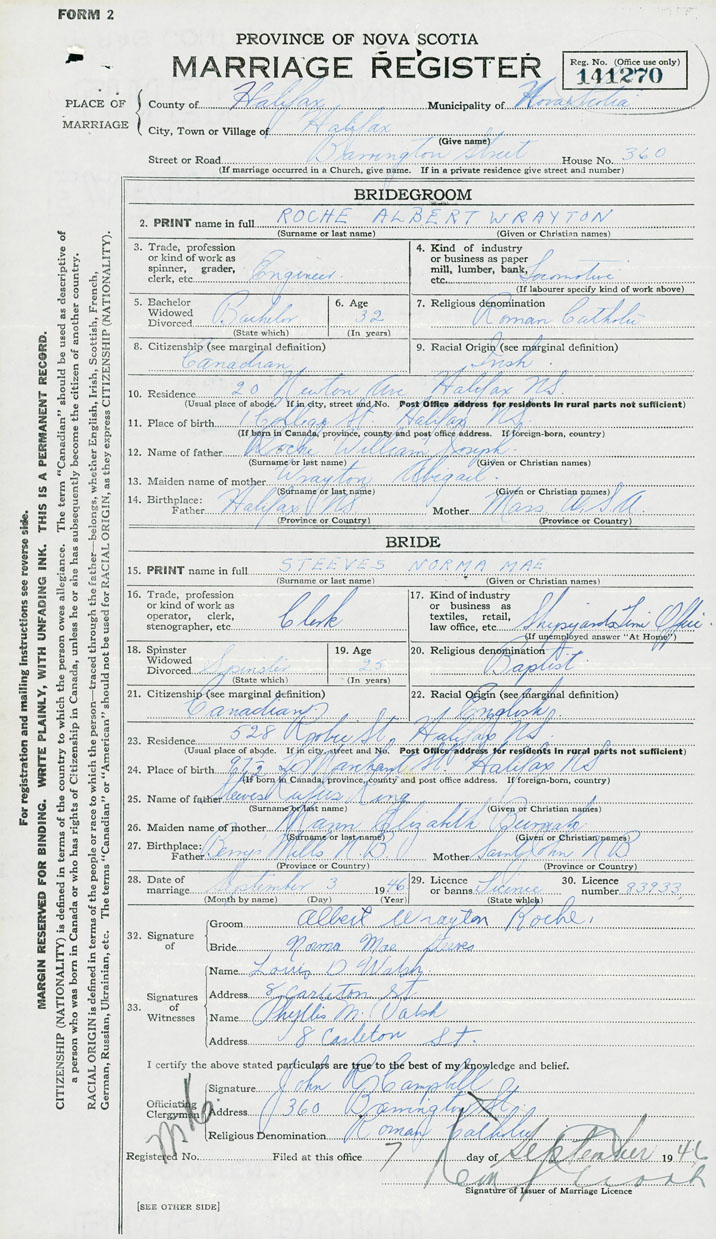 FORM 2
PROVINCE OF NOVA SCOTIA
MARRIAGE REGISTER
Reg. No. (Office use only)
141270
PLACE OF MARRIAGE
County of Halifax Municipality of Nova Scotia
City, Town or Village of Halifax
(Give name)
Street or Road Barrington Street House No. 360
(If marriage occurred in a Church, give name. If in a private residence give street and number)
BRIDEGROOM
2. PRINT name in full ROCHE ALBERT WRAYTON
(Surname or last name) (Given or Christian names)
3. Trade, profession or kind of work as spinner, grader, clerk, etc. Engineer
4. Kind of industry or business as paper mill, lumber, bank, etc. Locomotive
(If labourer specify kind of work above)
5. Bachelor Widowed Divorced Bachelor
(State which)
6. Age 32
(In years)
7. Religious denomination
Roman Catholic
8. Citizenship (see marginal definition)
Canadian
9. Racial Origin (see marginal definition)
Irish
10. Residence 20 Newton Ave Halifax NS
(Usual place of abode. If in city, street and No. Post Office address for residents in rural parts not sufficient)
11. Place of birth College St Halifax NS
(If born in Canada, province, county and post office address. If foreign-born, country)
12. Name of father Roche William Joseph
(Surname or last name) (Given or Christian names)
13. Maiden name of mother Wrayton Abigail
(Surname or last name) (Given or Christian names)
14. Birthplace: Father Halifax NS Mother Mass U.S.A.
(Province or Country) (Province or Country)
BRIDE
15. PRINT name in full STEEVES NORMA MAE
(Surname or last name) (Given or Christian names)
16. Trade, profession or kind of work as operator, clerk, stenographer, etc Clerk
17. Kind of industry or business as textiles, retail, law office, etc. Shipyards Time Office
(If unemployed answer "At Home")
18. Spinster Widowed Divorced Spinster
(State which)
19. Age 25
(In years)
20. Religious denomination
Baptist
21. Citizenship (see marginal definition)
Canadian
22. Racial Origin (see marginal definition)
English
23. Residence 528 Robie St. Halifax NS.
(Usual place of abode. If in city, street and No. Post Office address for residents in rural parts not sufficient)
24. Place of birth St. Halifax NS
(If born in Canada, province, county and post office address. If foreign-born, country)
25. Name of father Steeves
(Surname or last name) (Given or Christian names)
26. Maiden name of mother Elizabeth
(Surname or last name) (Given or Christian names)
27. Birthplace: Father N.B. Mother Saint John N B
(Province or Country) (Province or Country)
28. Date of marriage September 3 1946
(Month by name) (Day) (Year)
29. Licence or banns Licence
(State which)
30. Licence number 83933
32. Signature of
Groom Albert Wrayton Roche
Bride Norma Mae Steeves
33. Signatures of Witnesses
Name Louis D Walsh
Address 8 Carleton St
Name Phyllis M. Walsh
Address 8 Carleton St.
I certify the above stated particulars are true to the best of my knowledge and belief.
Officiating Clergyman
Signature John R Campbell
Address 360 Barrington St.
Religious Denomination Roman Catholic
Registered No. Filed at this office 7 day of September 1946
Signature of Issuer of Marriage Licence
[SEE OTHER SIDE]
For registration and mailing instructions see reverse side.
MARGIN RESERVED FOR BINDING. WRITE PLAINLY, WITH UNFADING INK. THIS IS A PERMANENT RECORD.
CITIZENSHIP (NATIONALITY) is defined in terms of the country to which the person owes allegiance. The term "Canadian" should be used as descriptive of
a person who was born in Canada or who has rights of Citizenship in Canada, unless he or she has subsequently become the citizen of another country.
RACIAL ORIGIN is defined in terms of the people or race to which the person—traced through the father—belongs, whether English, Irish, Scottish, French,
German, Russian, Ukrainian, etc. The terms "Canadian" or "American" should not be used for RACIAL ORIGIN, as they express CITIZENSHIP (NATIONALITY).